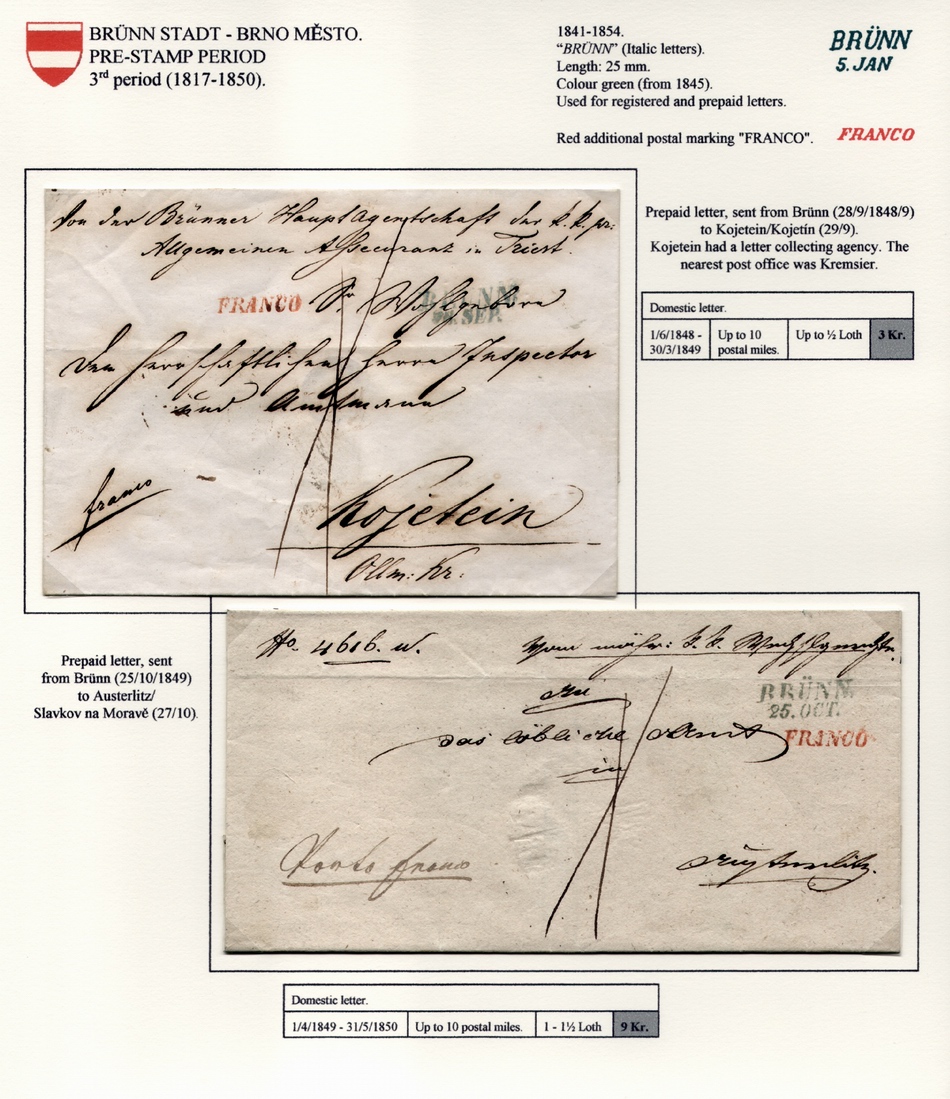 BRÜNN STADT - BRNO MĚSTO.
PRE-STAMP PERIOD
3rd period (1817-1850).
1841-1854.
“BRÜNN” (Italic letters).
Length: 25 mm.
Colour green (from 1845).
Used for registered and prepaid letters.
Red additional postal marking "FRANCO".
BRÜNN
5. JAN
FRANCO
Von der Brünner Hauptagentschaft der k. k. pr:
Allgemeinen Assecuranz in Triest.
FRANCO Sr Wohlgeborn
BRÜNN
SEP.
Dem herrschaftlichen Herrn Inspector
und Amtmann
franco
Kojetein
Ollm: Kr:
Prepaid letter, sent from Brünn (28/9/1848/9)
to Kojetein/Kojetín (29/9).
Kojetein had a letter collecting agency. The
nearest post office was Kremsier.
Domestic letter.
1/6/1848 - 30/3/1849 Up to 10 postal miles. Up to ½ Loth 3 Kr.
Prepaid letter, sent
from Brünn (25/10/1849)
to Austerlitz/
Slavkov na Moravě (27/10).
No. 4616. w.
Vom mähr: k. k.
BRÜNN.
25. OCT.
FRANCO
an
das löbliche Amt
in
Porto franco
Austerlitz.
Domestic letter.
1/4/1849 - 31/5/1850 Up to 10 postal miles. 1 - 1½ Loth 9 Kr.